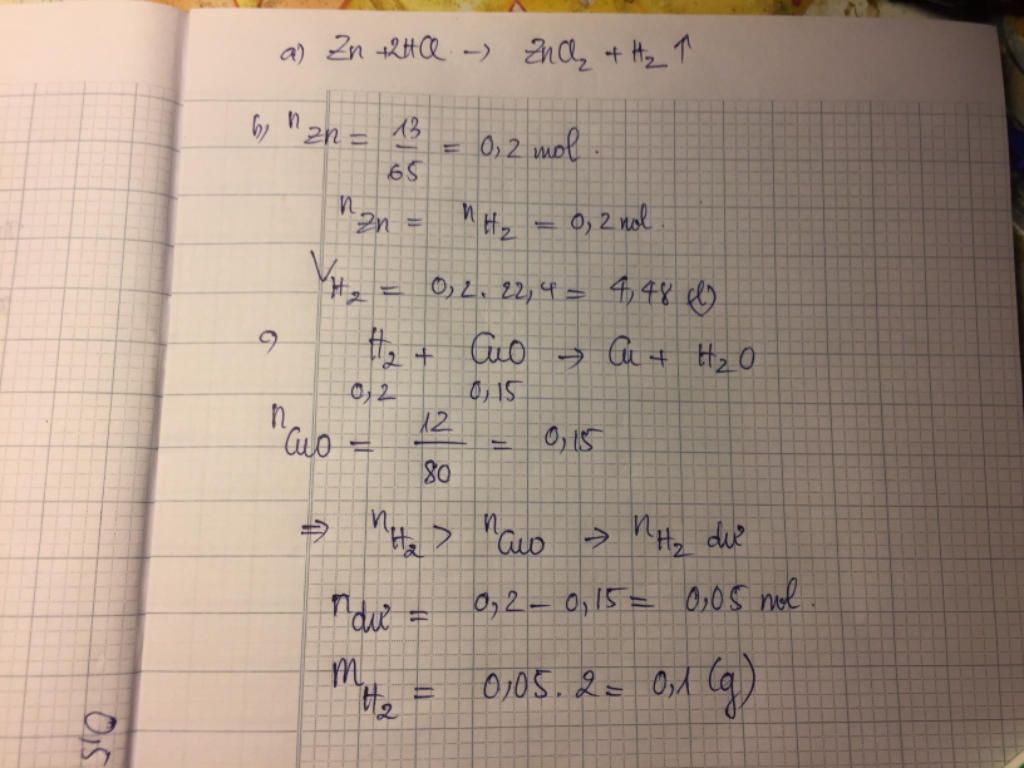 a) Zn + 2HCl → ZnCl₂ + H₂ ↑
b, n Zn = 13/65 = 0,2 mol.
n Zn = n H₂ = 0,2 mol.
V H₂ = 0,2 . 22,4 = 4,48 (l)
c) H₂ + CuO → Cu + H₂O
0,2 0,15
n CuO = 12/80 = 0,15
⇒ n H₂ > n CuO → n H₂ dư
n dư = 0,2 - 0,15 = 0,05 mol.
m H₂ = 0,05 . 2 = 0,1 (g)